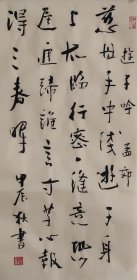 游子吟 孟郊
慈母手中綫遊子身
上衣臨行密々縫意恐
遲々歸誰言寸草心報
得三春暉 甲辰秋書